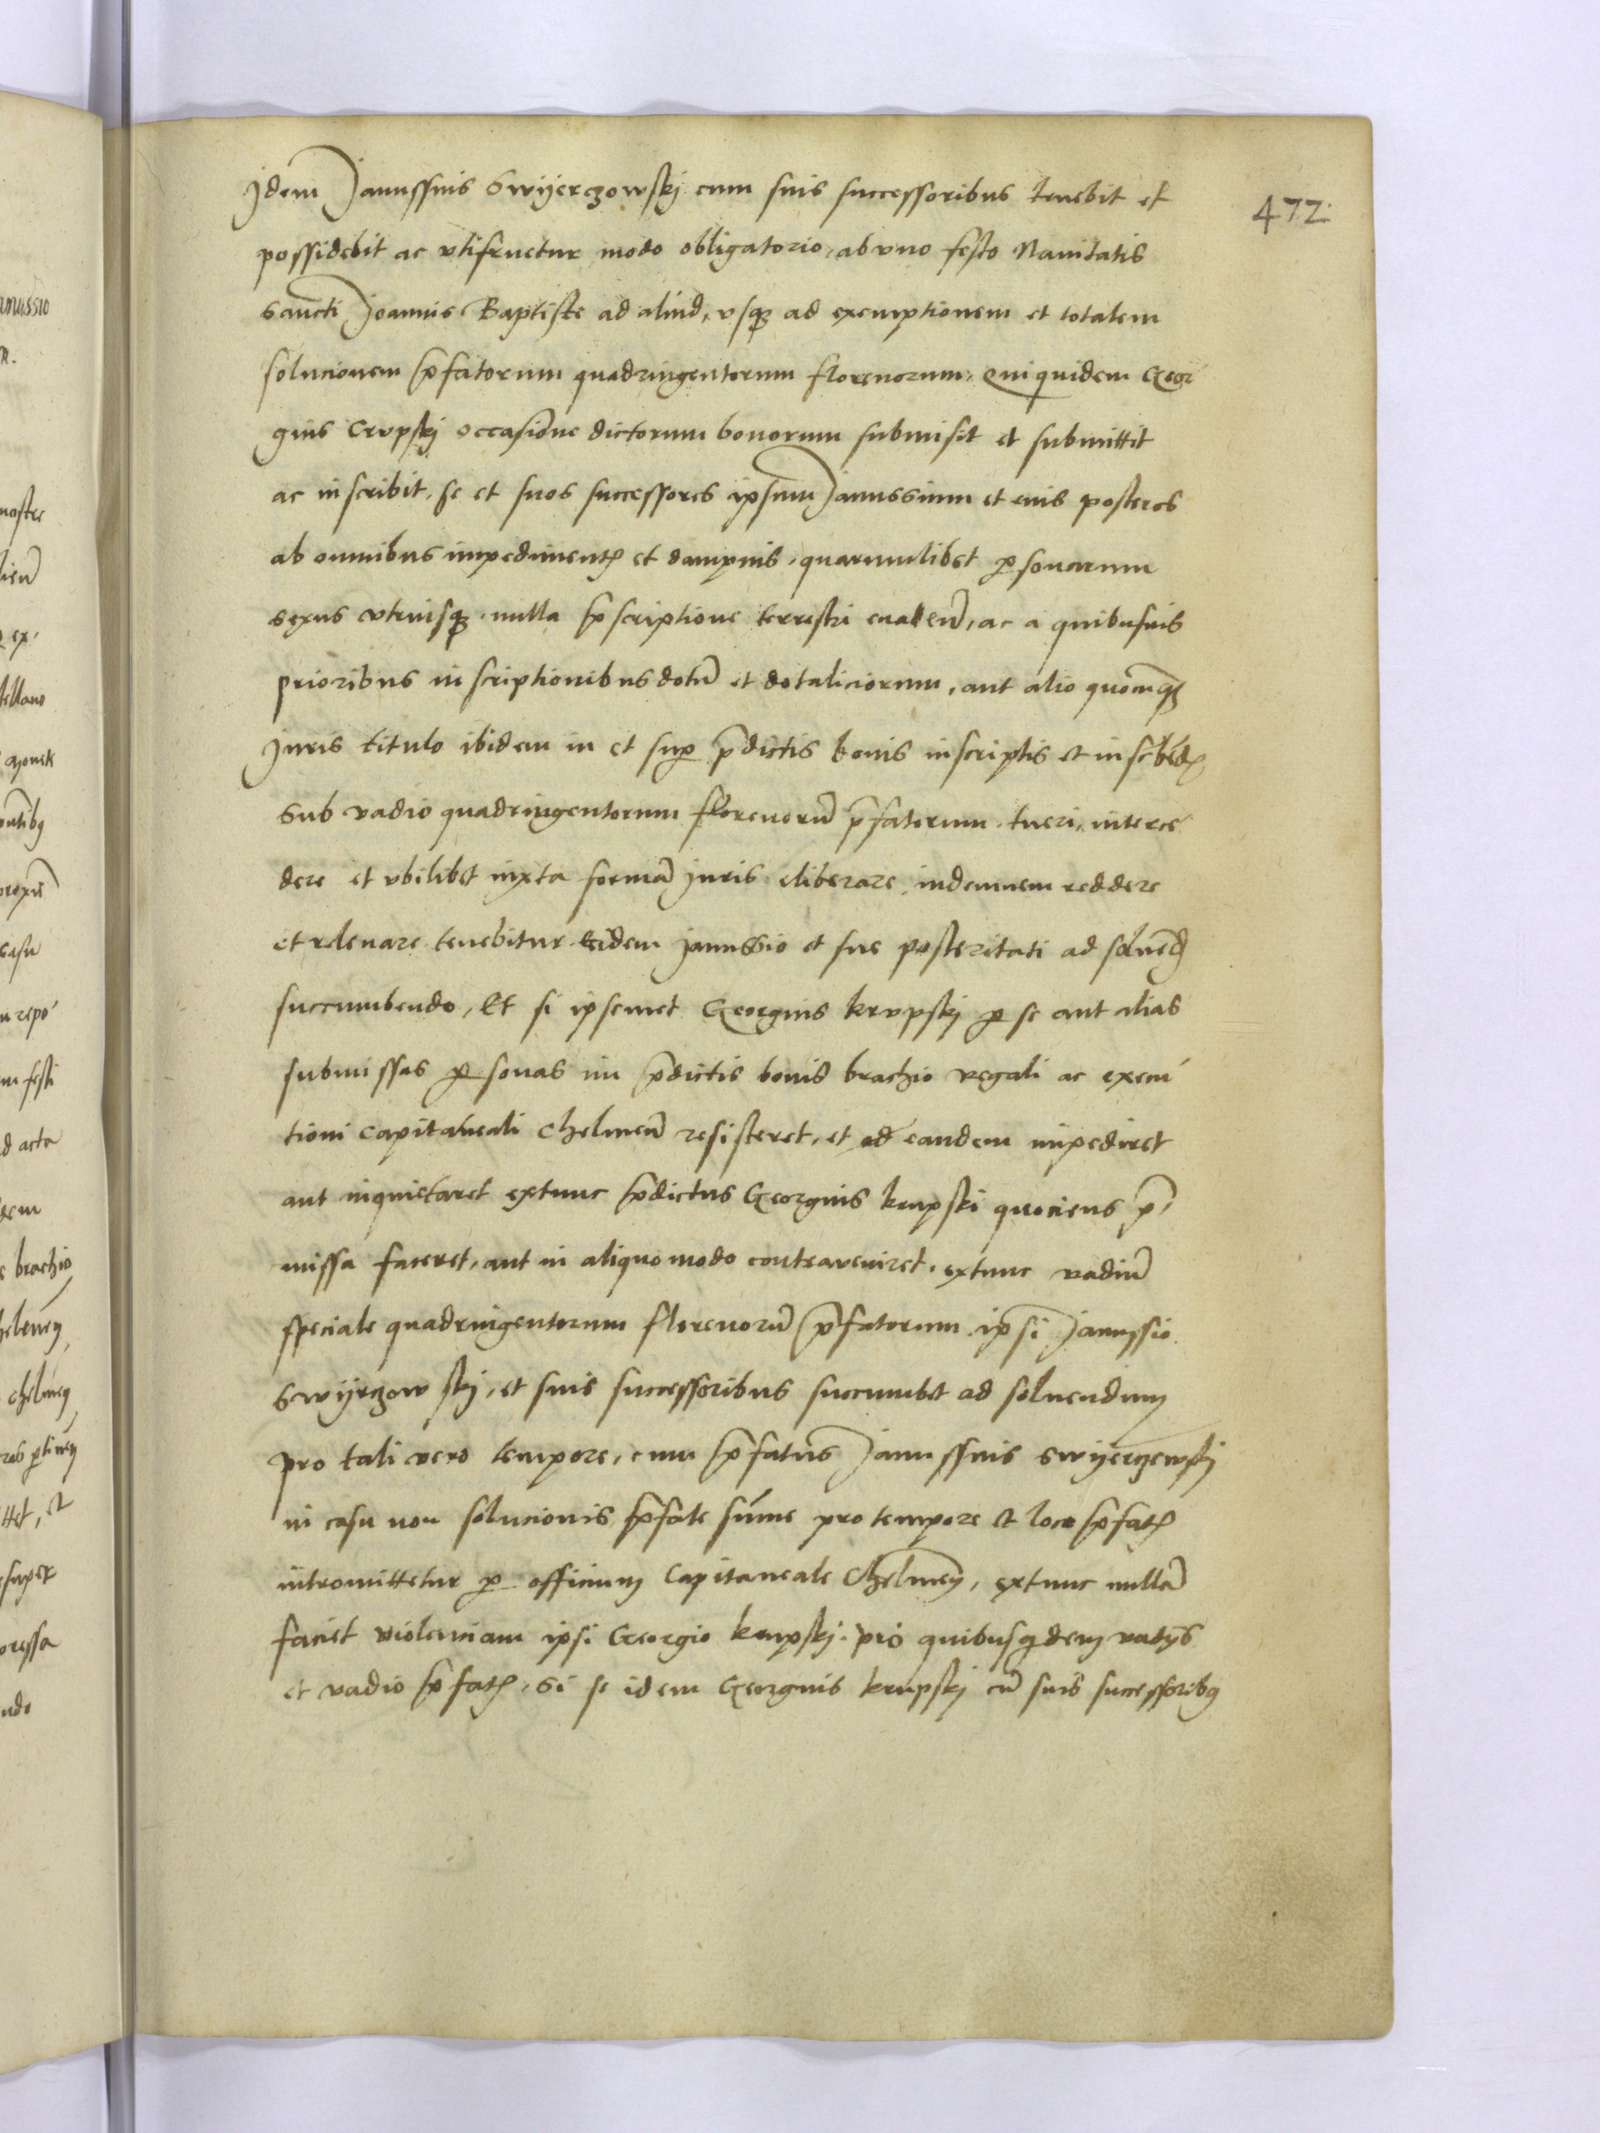 472
Jdem Janussius Swyerczowskj cum suis successoribus tenebit et
possidebit ac vtifruetur modo obligatorio, ab vno festo Natiuitatis
Sancti Joannis Baptiste ad aliud, vsq3 ad exemptionem et totalem
solucionem p̄fatorum quadringentorum florenorum, Qui quidem Geor
gius Crupskj occasione dictorum bonorum submisit et submittit
ac inscribit, se et suos successores ipsum Janussium et eius posteros
ab omnibus impedimentꝭ et dampnis, quarumlibet ꝑsonarum
sexus vtriusq3, nulla p̄scriptione terrestri euadeñ, ac a quibusuis
prioribus inscriptionibus dotū et dotaliciorum, aut alio quocunq3
Juris titulo ibidem in et suꝑ p̄dictis bonis inscriptis et inscbēdꝭ
sub vadio quadringentorum florenorū p̄fatorum tueri, interce
dere et vbilibet iuxta formā juris eliberare, indemnem reddere
et releuare tenebitur eidem Janussio et sue posteritati ad soluēd
succumbendo, Et si ipsemet Georgius krupskj ꝑ se aut alias
submissas ꝑsonas in p̄dictis bonis brachio regali ac execu
tioni Capitaneali Chelmeñ resisteret, et ad eandem impediret
aut inquietaret extunc p̄dictus Georgius krupski quociens p̄
missa faceret, aut in aliquo modo contraueniret, extunc vadiū
speciale quadringentorum florenorū p̄fatorum ipsi Janussio
Swyrczowskj, et suis successoribus succumbet ad soluendum
pro tali vero tempore, cum p̄fatus Janussius Swyerzewskj
in casu non solucionis p̄fate sūme pro tempore et loco p̄fatꝭ
intromittetur ꝑ officium Capitaneale Chelmeñ, extunc nullā
faciet violenciam ipsi Georgio krupskj. pro quibusqdem vadys
et vadio p̄fatꝭ, Si se idem Georgius krupskj cū suis successoribꝰ